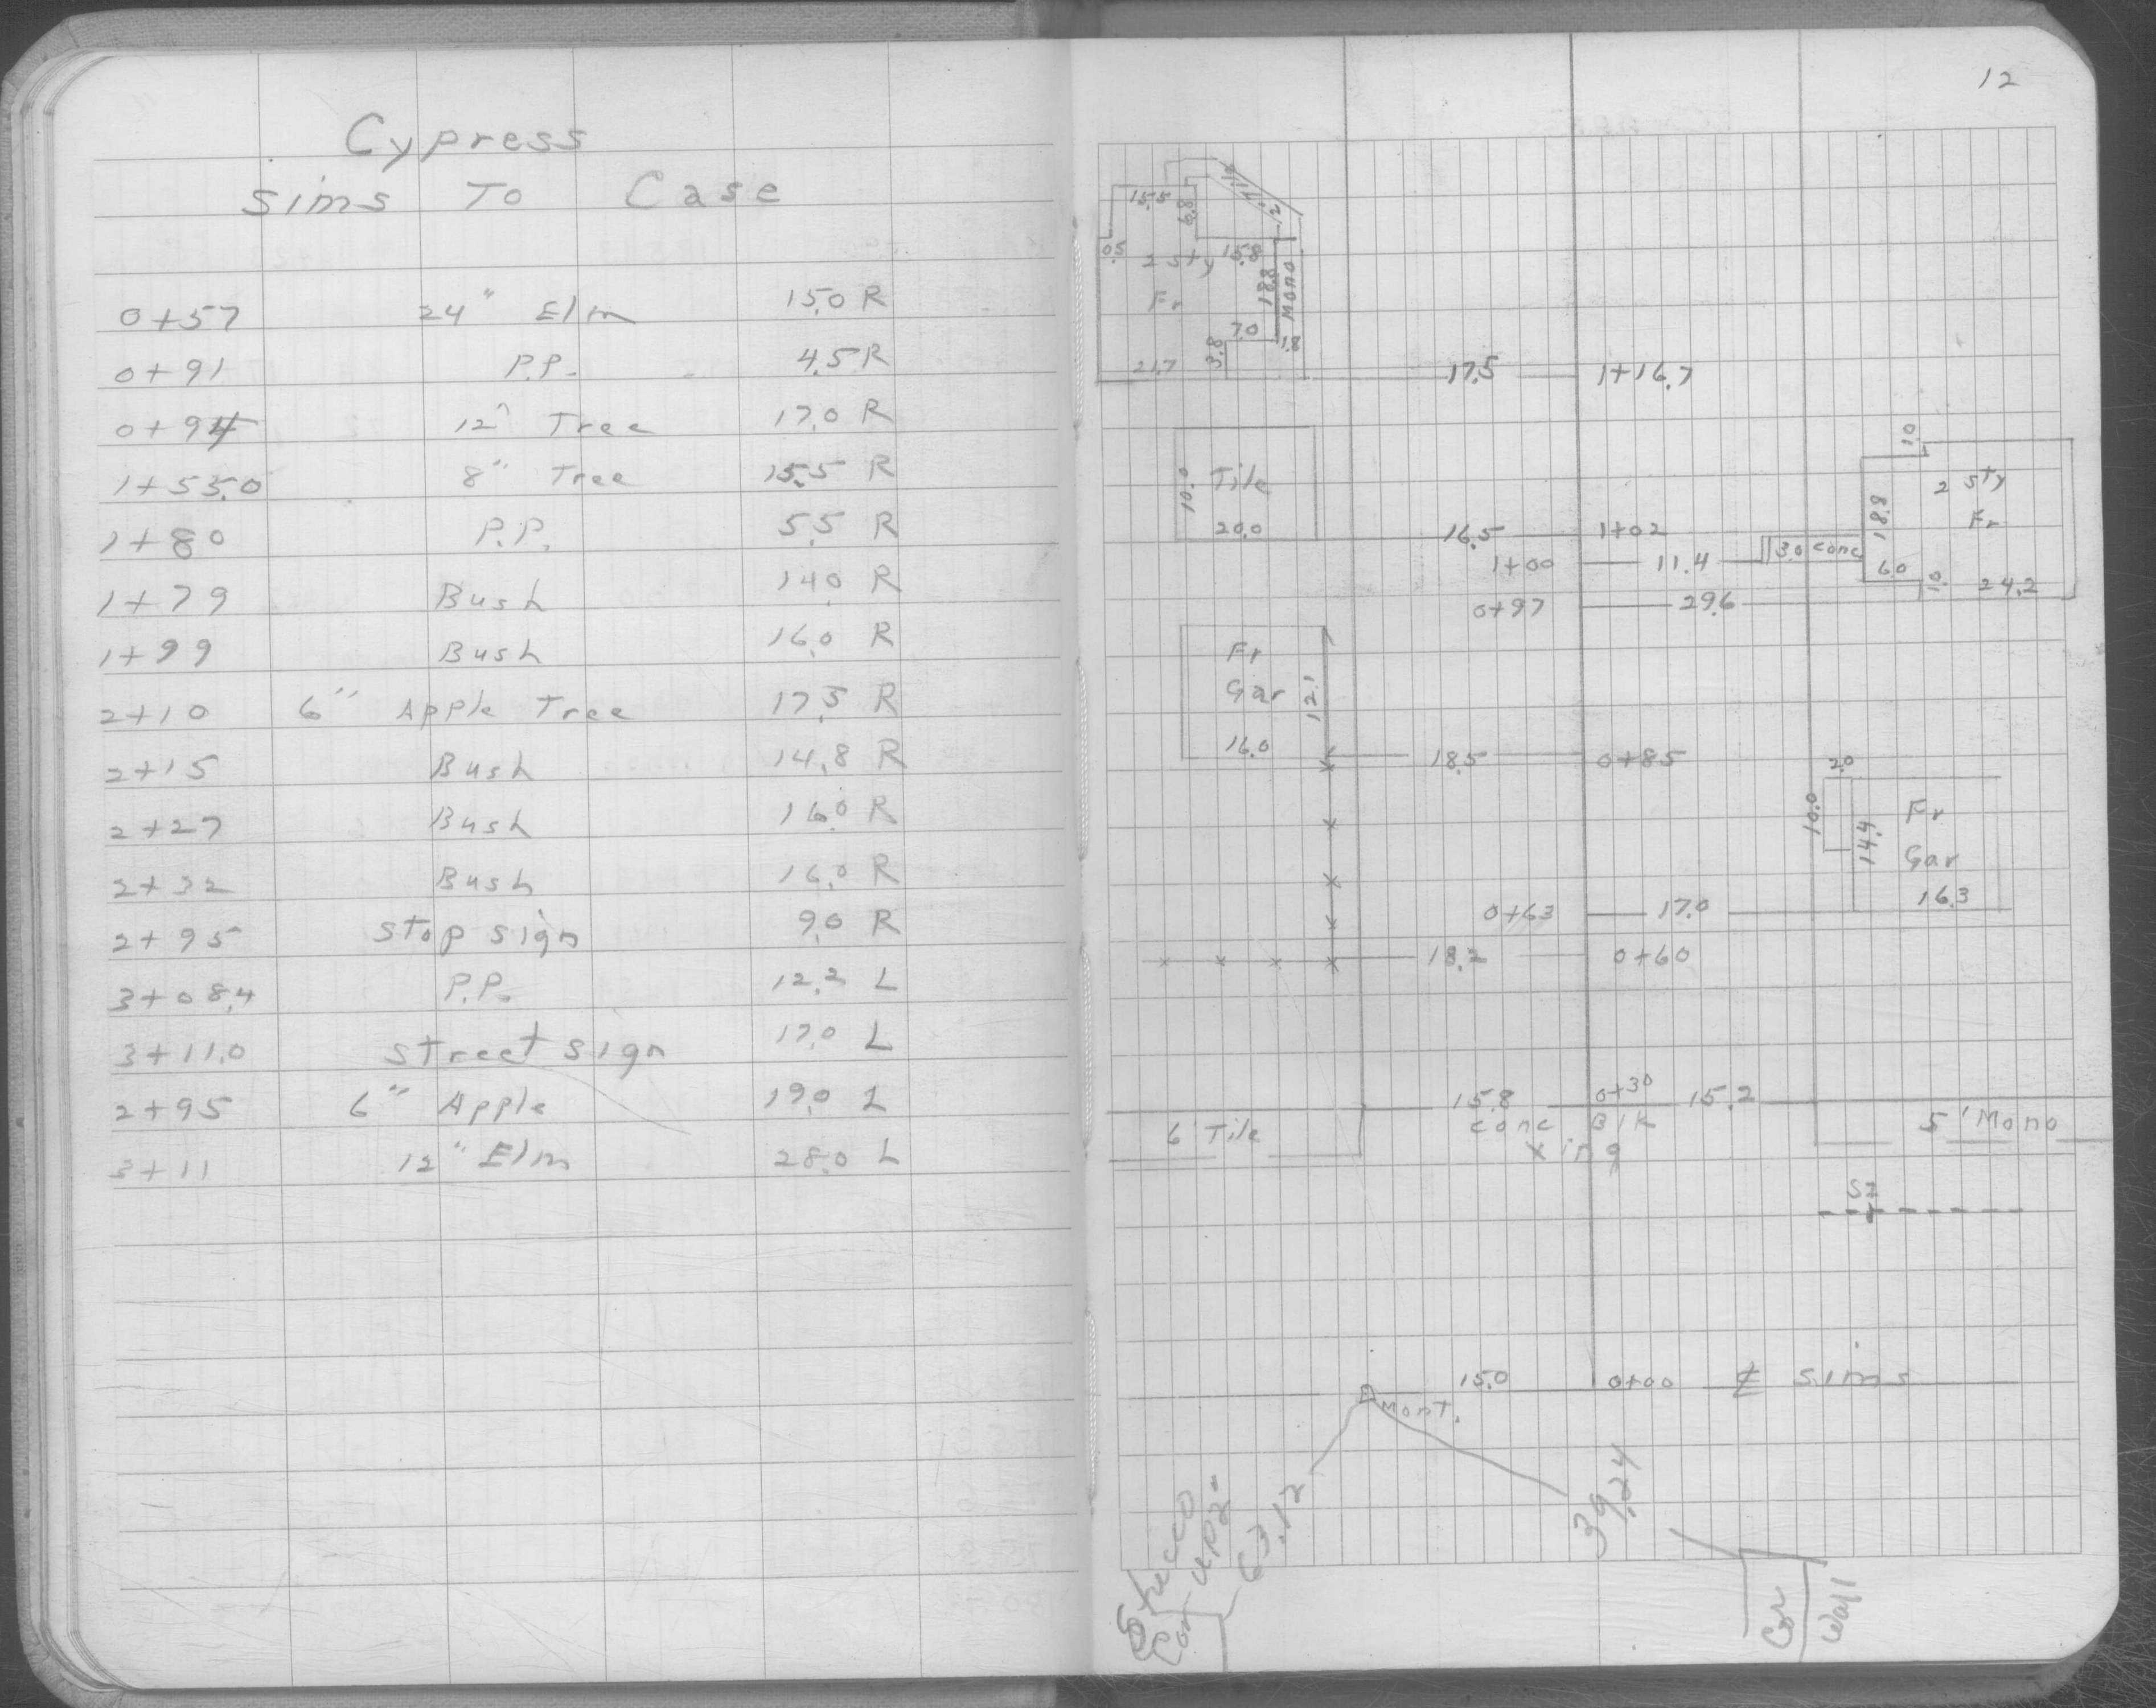 Cypress
Sims To Case
0+57 24" Elm 15.0 R
0+91 P.P. 4.5 R
0+94 12" Tree 17.0 R
1+55.0 8" Tree 15.5 R
1+80 P.P. 5.5 R
1+79 Bush 14.0 R
1+99 Bush 16.0 R
2+10 6" Apple Tree 17.5 R
2+15 Bush 14.8 R
2+27 Bush 16.0 R
2+32 Bush 16.0 R
2+95 Stop sign 9.0 R
3+08.4 P.P. 12.2 L
3+11.0 street sign 17.0 L
2+95 6" Apple 19.0 L
3+11 12" Elm 28.0 L
12
15.5 6.8 12
0.5 2 sty 15.8
Fr 18.8 Mono
7.0 1.8
21.7 3.8 17.5 1+16.7
1.0
10.0 Tile 18.8 2 sty
Fr
20.0 16.5 1+02
1+00 11.4 3.0 conc 6.0
0+97 29.6 24.2
Fr
Gar 12.1
16.0 18.5 0+85
2.0
10.0 14.4 Fr
Gar
0+63 17.0 16.3
18.2 0+60
15.8 0+30 15.2
6' Tile conc Blk 5' Mono
X ing
15.0 0+00 ℄ Sims
Mont.
63.12 39.24
Stucco
Cor up 2"
Cor
Wall